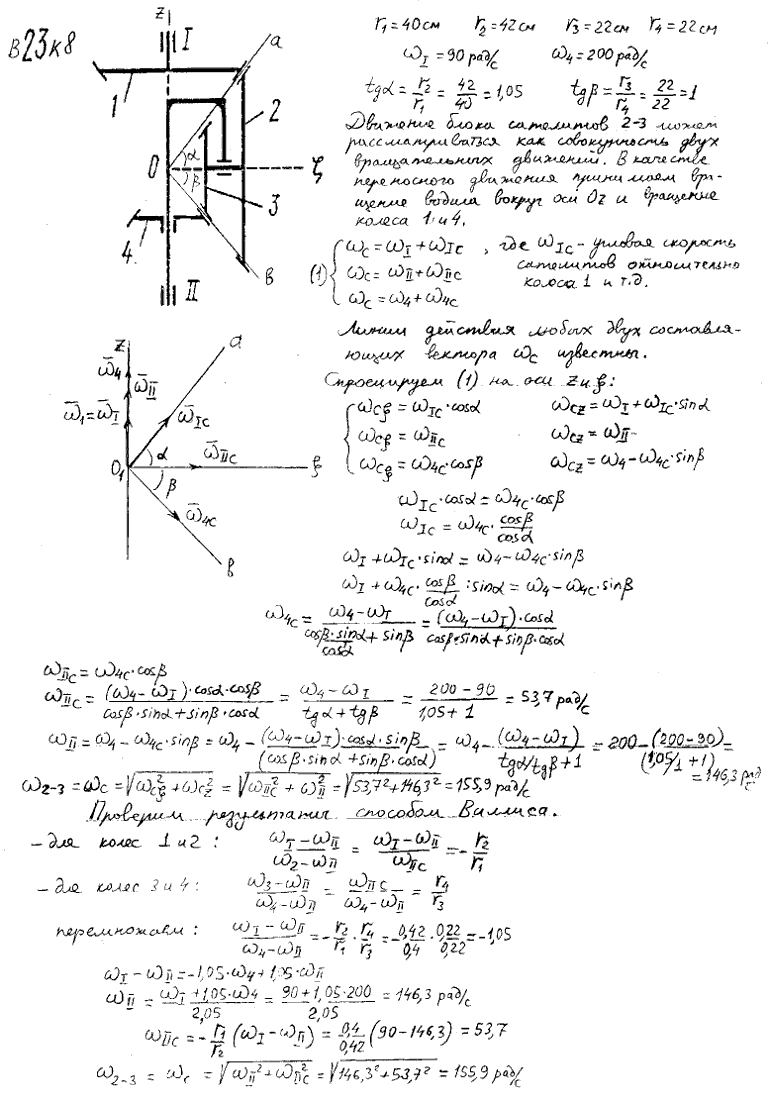 В23к8
z
I
a
1
2
O
α
β
ζ
3
4
II
в
r₁ = 40 см r₂ = 42 см r₃ = 22 см r₄ = 22 см
ω_I = 90 рад/с ω₄ = 200 рад/с
tgα = r₂/r₁ = 42/40 = 1,05 tgβ = r₃/r₄ = 22/22 = 1
Движение блока сателитов 2-3 может
рассматриваться как совокупность двух
вращательных движений. В качестве
переносного движения принимаем вра-
щение водила вокруг оси Oz и вращение
колеса 1 и 4.
(1) { ω_C = ω_I + ω_IC , где ω_IC - угловая скорость
ω_C = ω_II + ω_IIC сателитов относительно
ω_C = ω₄ + ω_4C колоса 1 и т.д.
Линии действия любых двух составля-
ющих вектора ω_C известны.
Спроецируем (1) на оси z и ξ:
{ ω_Cξ = ω_IC · cosα ω_CZ = ω_I + ω_IC · sinα
ω_Cξ = ω_IIC ω_CZ = ω_II
ω_Cξ = ω_4C · cosβ ω_CZ = ω₄ - ω_4C · sinβ
z
a
ω̄₄
ω̄_II
ω̄₁ = ω̄_I
ω̄_IC
O₁
α
ω̄_IIC
ξ
β
ω̄_4C
в
ω_IC · cosα = ω_4C · cosβ
ω_IC = ω_4C · cosβ/cosα
ω_I + ω_IC · sinα = ω₄ - ω_4C · sinβ
ω_I + ω_4C · cosβ/cosα · sinα = ω₄ - ω_4C · sinβ
ω_4C = (ω₄ - ω_I)/(cosβ · sinα/cosα + sinβ) = (ω₄ - ω_I) · cosα/(cosβ · sinα + sinβ · cosα)
ω_IIC = ω_4C · cosβ
ω_IIC = (ω₄ - ω_I) · cosα · cosβ/(cosβ · sinα + sinβ · cosα) = (ω₄ - ω_I)/(tgα + tgβ) = (200 - 90)/(1,05 + 1) = 53,7 рад/с
ω_II = ω₄ - ω_4C · sinβ = ω₄ - (ω₄ - ω_I) · cosα · sinβ/(cosβ · sinα + sinβ · cosα) = ω₄ - (ω₄ - ω_I)/(tgα/tgβ + 1) = 200 - (200 - 90)/(1,05/1 + 1) =
= 146,3 рад/с
ω₂₋₃ = ω_C = √(ω_Cξ² + ω_CZ²) = √(ω_IIC² + ω_II²) = √(53,7² + 146,3²) = 155,9 рад/с
Проверим результаты способом Виллиса.
- для колес 1 и 2 : (ω_I - ω_II)/(ω₂ - ω_II) = (ω_I - ω_II)/ω_IIC = - r₂/r₁
- для колес 3 и 4 : (ω₃ - ω_II)/(ω₄ - ω_II) = ω_IIC/(ω₄ - ω_II) = r₄/r₃
перемножаем : (ω_I - ω_II)/(ω₄ - ω_II) = - r₂/r₁ · r₄/r₃ = - 0,42/0,4 · 0,22/0,22 = -1,05
ω_I - ω_II = -1,05 · ω₄ + 1,05 · ω_II
ω_II = (ω_I + 1,05 · ω₄)/2,05 = (90 + 1,05 · 200)/2,05 = 146,3 рад/с
ω_IIC = - r₁/r₂ (ω_I - ω_II) = 0,4/0,42 (90 - 146,3) = 53,7
ω₂₋₃ = ω_C = √(ω_II² + ω_IIC²) = √(146,3² + 53,7²) = 155,9 рад/с